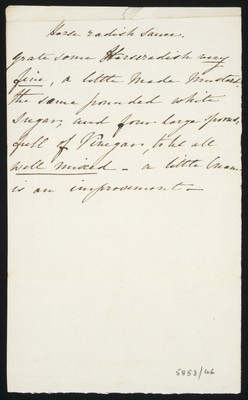 Horse radish Sauce.
grate some Horseradish very
fine, a little Made Mustard
the same pounded white
Sugar, and four large spoons,
full of Vinegar, to be all
well mixed – a little Cream
is an improvement –
5853/46